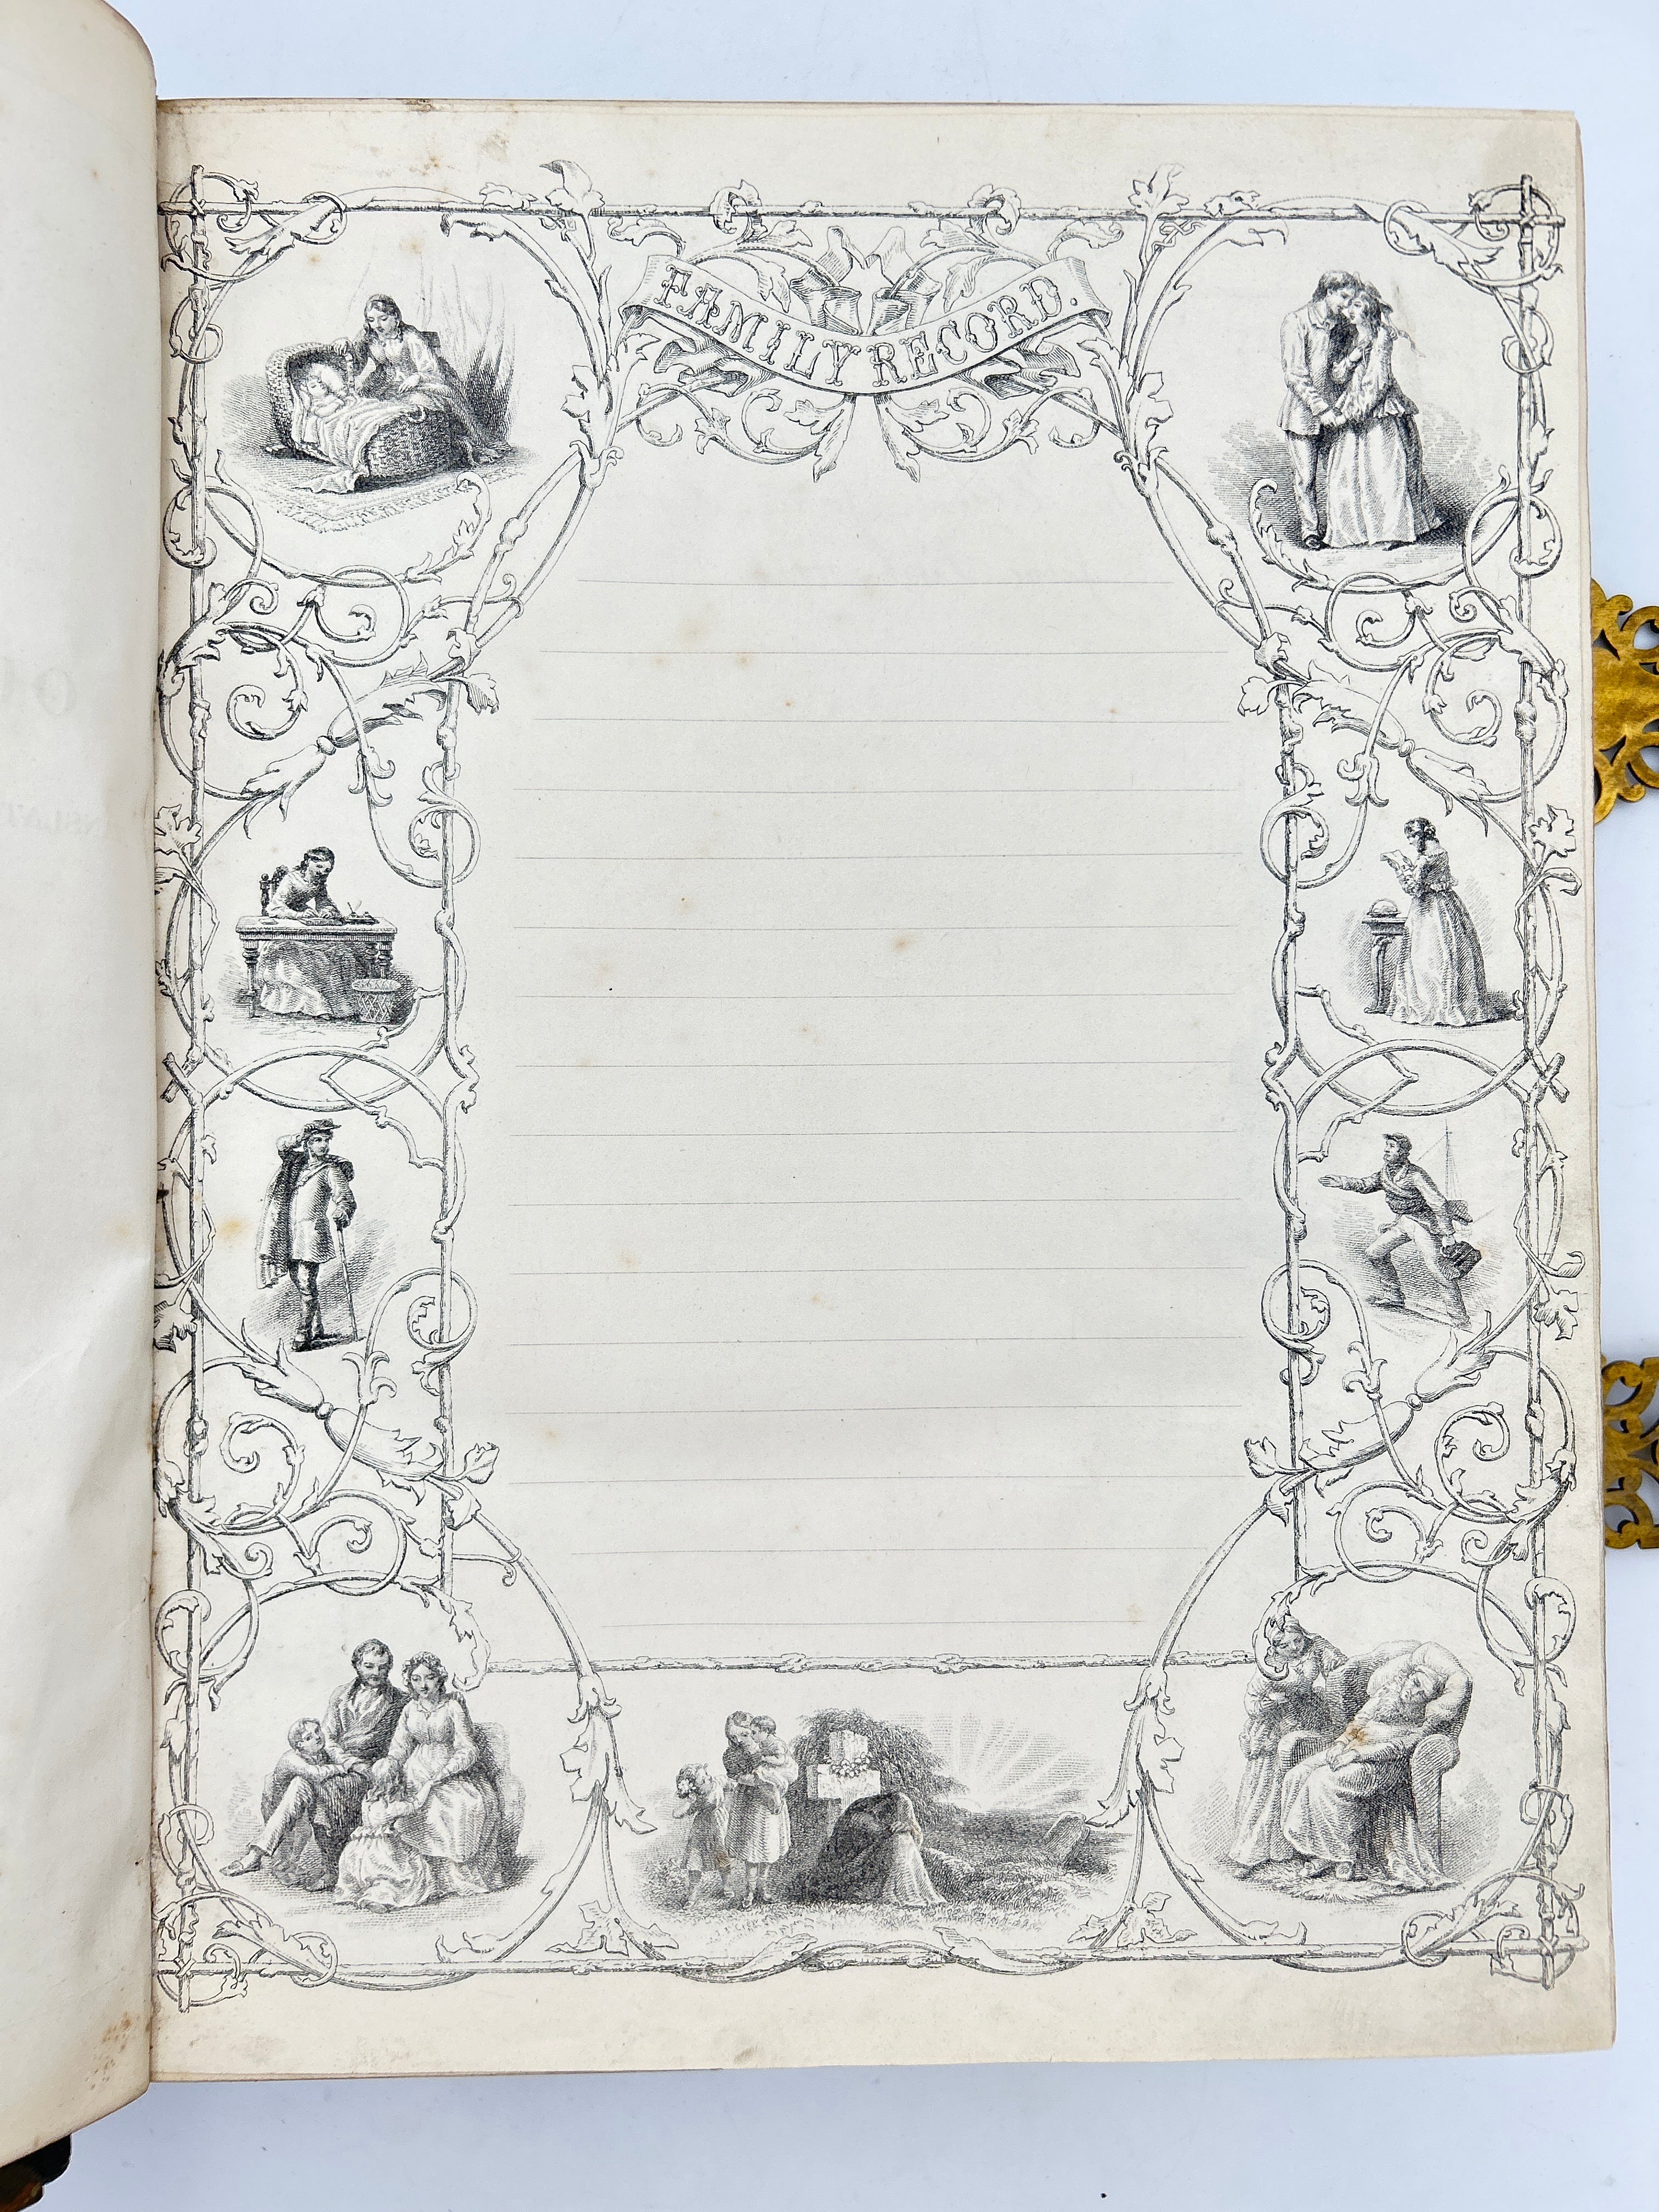 FAMILY RECORD.